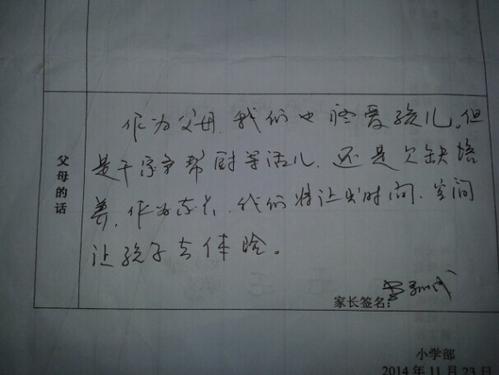 作为父母,我们也疼爱孩儿,但
是干家务帮厨等活儿,还是欠缺培
养,作为家长,我们将让出时间、空间
让孩子去体验。
父母的话
家长签名:
小学部
2014年11月23日